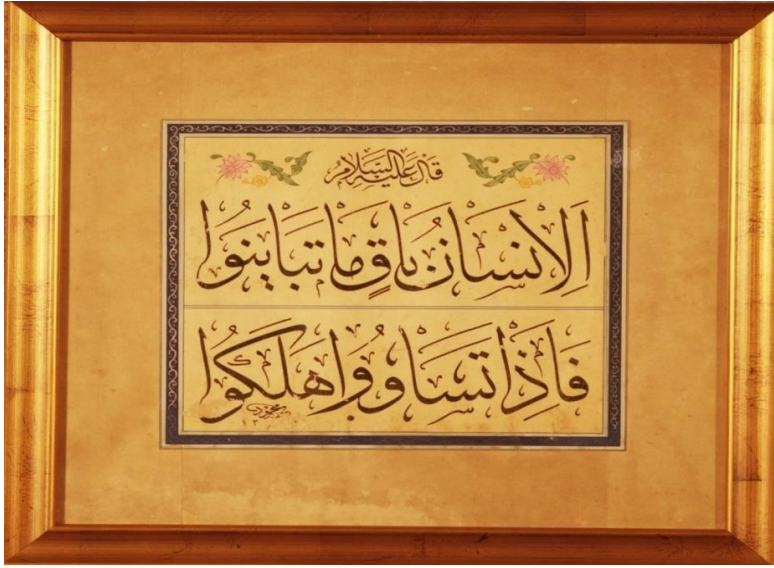 قَالَ عَلَيْهِ السَّلَامُ
اَلْاِنْسَانُ بَاقٍ مَا تَبَايَنُوا
فَاِذَا تَسَاوَوُا هَلَكُوا